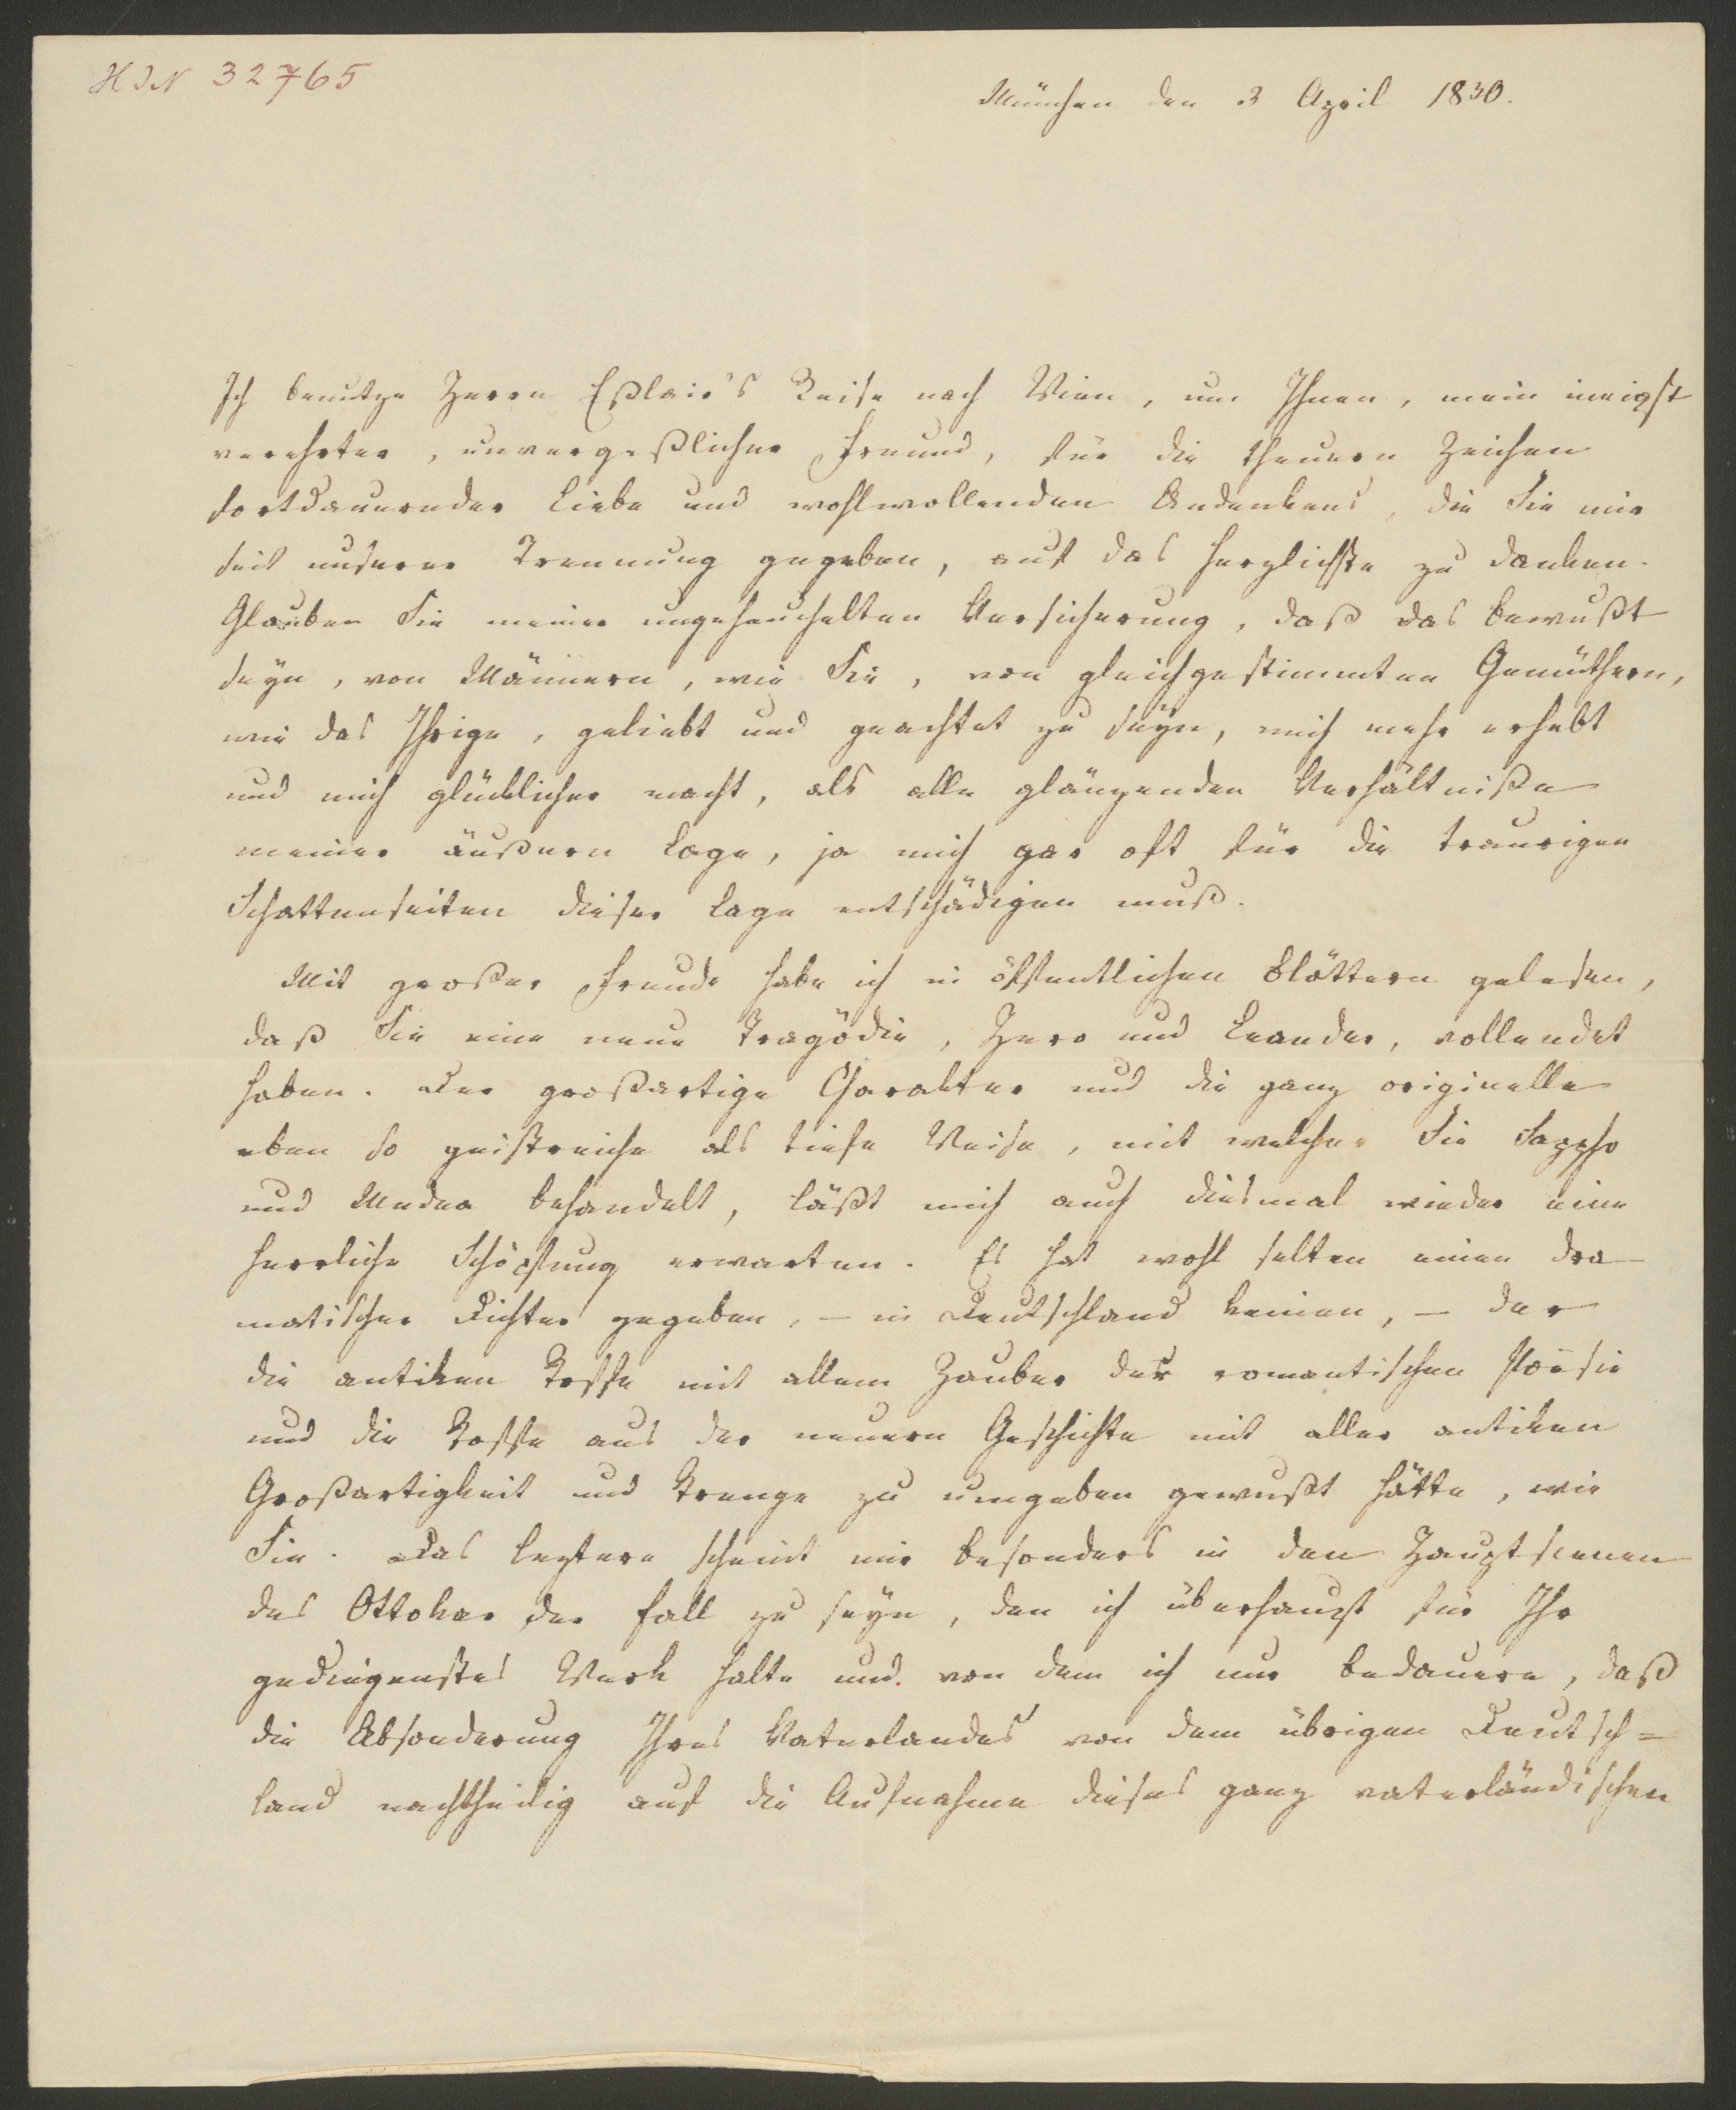 HIN 32765
München den 3 April 1830.
Ich benutze Herrn Eßlair's Reise nach Wien, um Ihnen, mein innigst
verehrter, unvergeßlicher Freund, für die theuern Zeichen
fortdauernder Liebe und wohlwollenden Andenkens, die Sie mir
seit unserer Trennung gegeben, auf das herzlichste zu danken.
Glauben Sie meiner ungeheuchelten Versicherung, daß das Bewußt
seyn, von Männern, wie Sie, von gleichgestimmten Gemüthern,
wie das Ihrige, geliebt und geachtet zu seyn, mich mehr erhebt
und mich glücklicher macht, als alle glänzenden Verhältniße
meiner äußern Lage, ja mich gar oft für die traurigen
Schattenseiten dieser Lage entschädigen muß.
Mit großer Freude habe ich in öffentlichen Blättern gelesen,
daß Sie eine neue Tragödie, Hero und Leander, vollendet
haben. Der großartige Charakter und die ganz originelle
eben so geistreiche als tiefe Weise, mit welcher Sie Sappho
und Medea behandelt, läßt mich auch diesmal wieder eine
herrliche Schöpfung erwarten. Es hat wohl selten einen dra
matischen Dichter gegeben, – in Deutschland keinen, – der
die antiken Stoffe mit allem Zauber der romantischen Poësie
und die Stoffe aus der neuern Geschichte mit aller antiken
Großartigkeit und Strenge zu umgeben gewußt hätte, wie
Sie. Das leztere scheint mir besonders in den Hauptscenen
des Ottokar der Fall zu seyn, den ich überhaupt für Ihr
gediegenstes Werk halte und von dem ich nur bedauere, daß
die Absonderung Ihres Vaterlandes von dem übrigen Deutsch=
land nachtheilig auf die Aufnahme dieses ganz vaterländischen